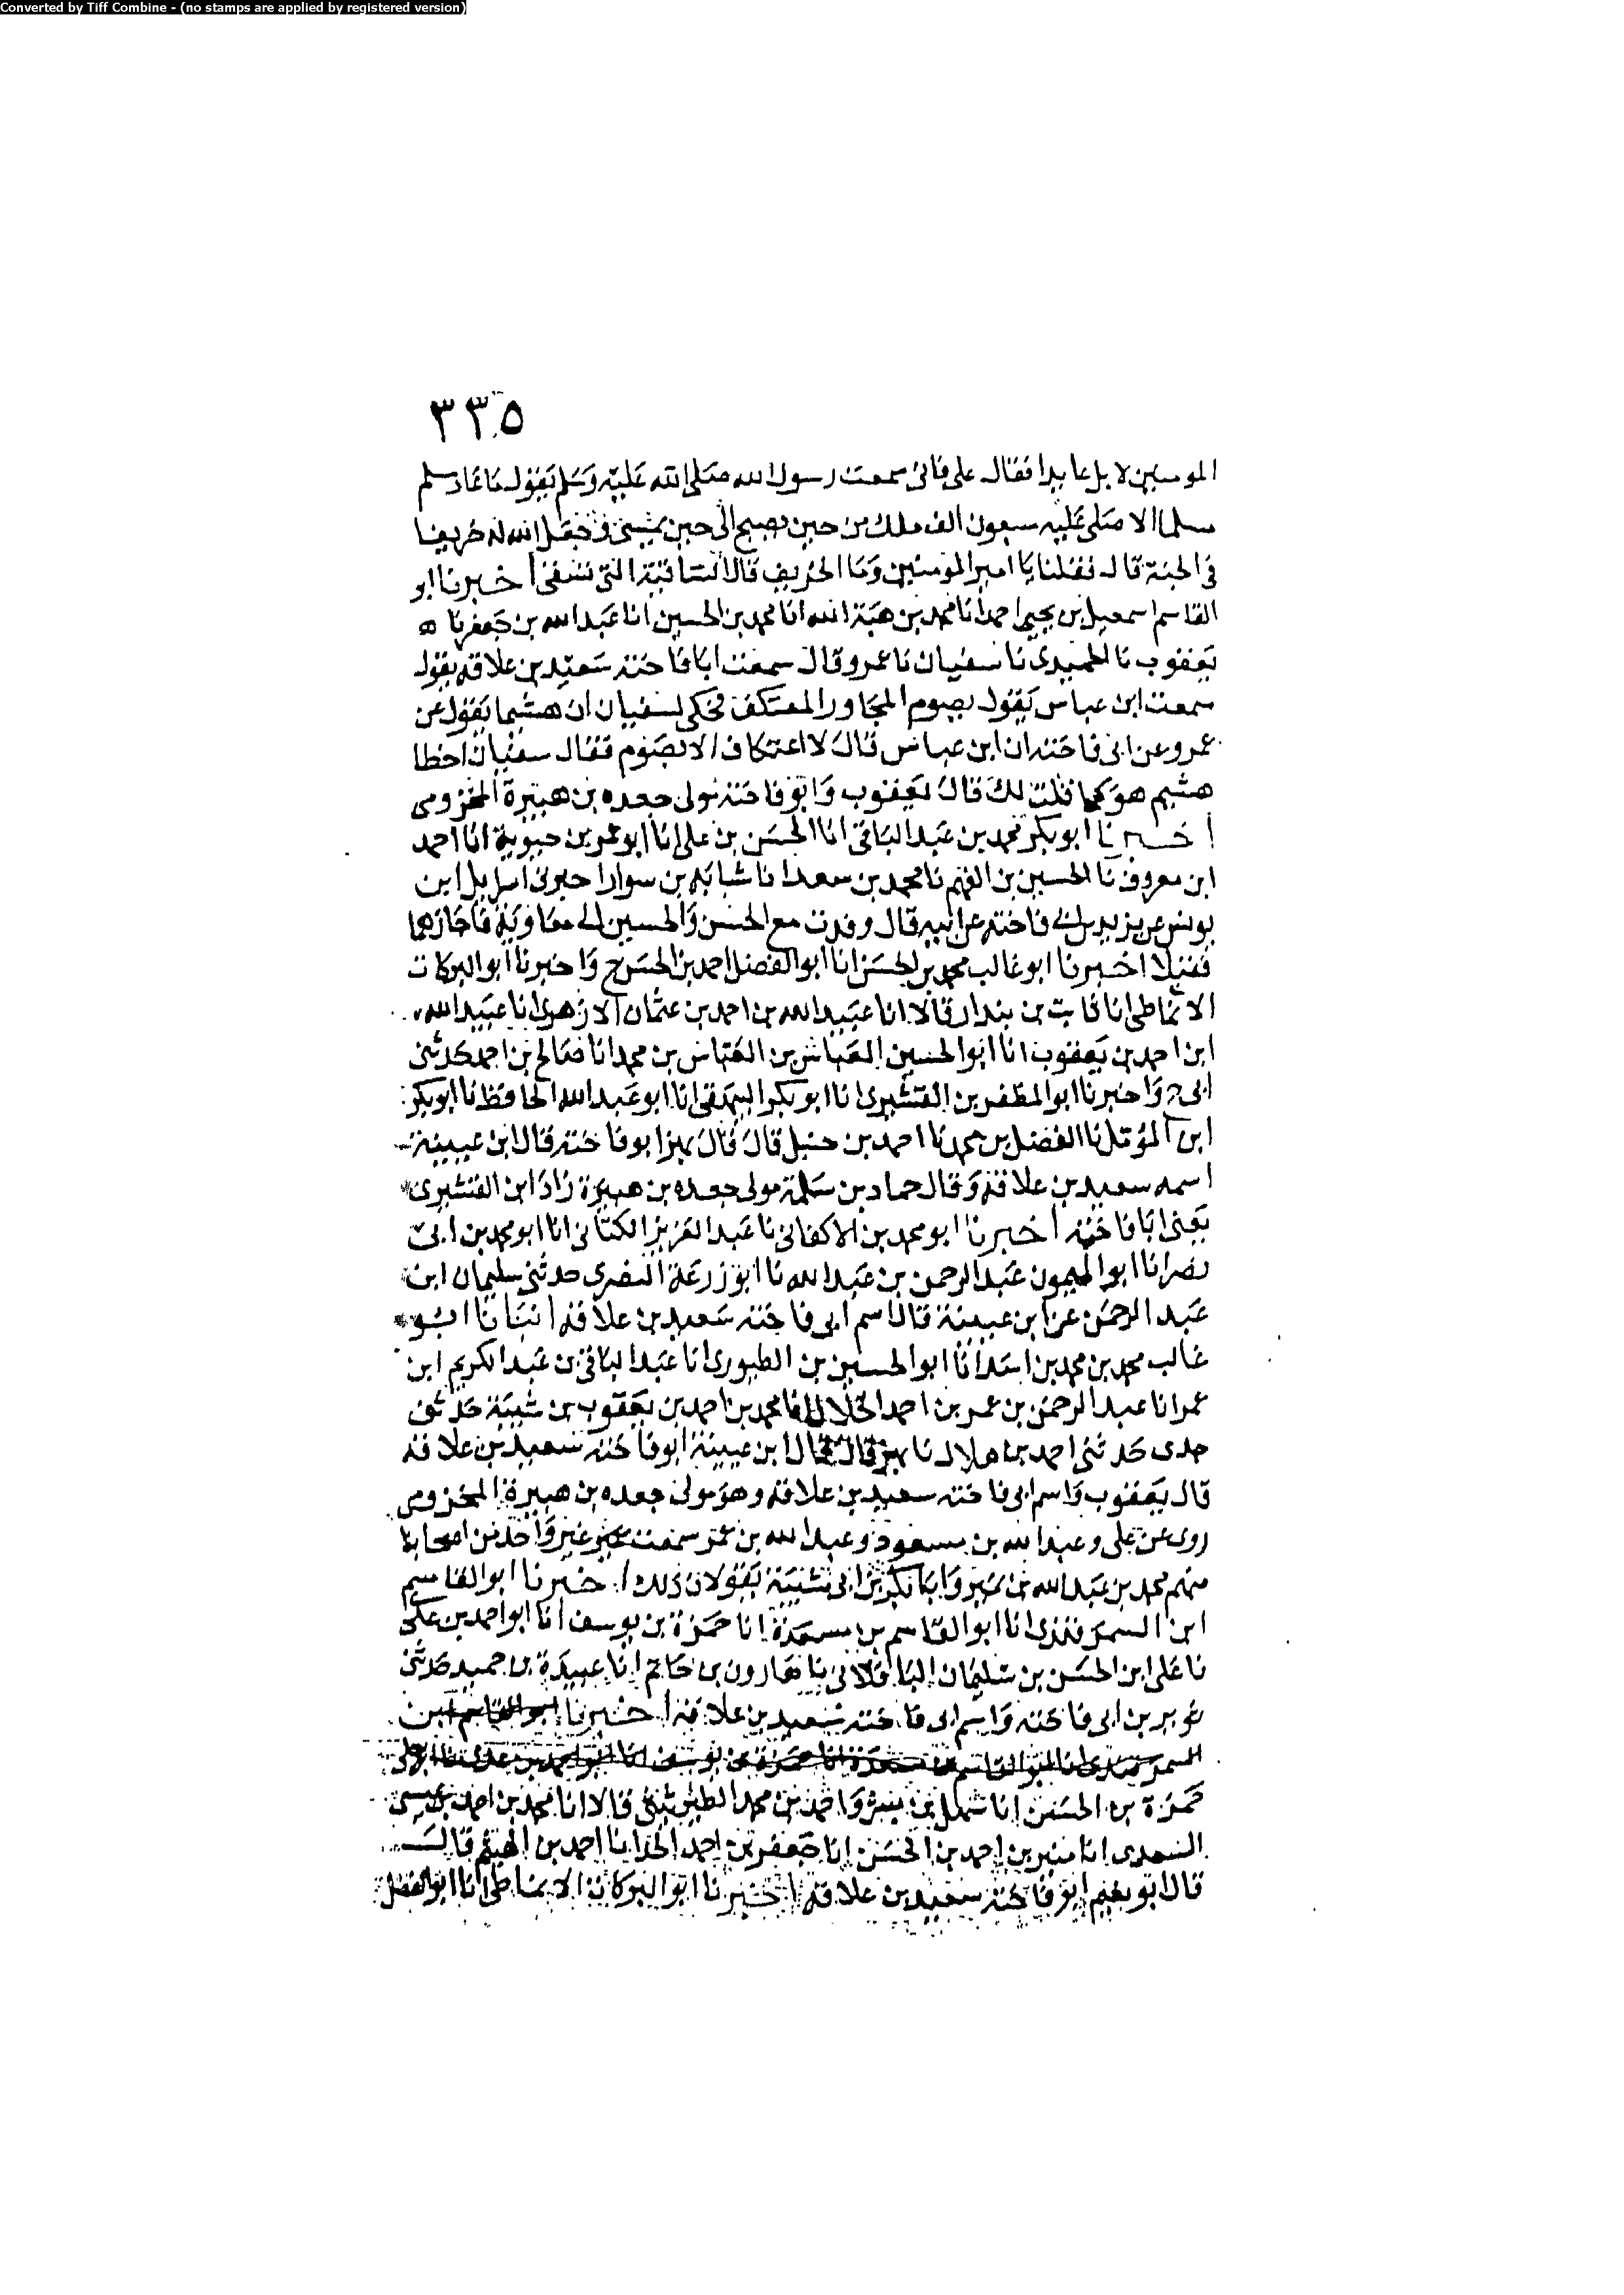 Converted by Tiff Combine - (no stamps are applied by registered version)
٣٣٥
المومنين لا بل عايدا فقال على فانى سمعت رسول الله صلى الله عليه وسلم يقول ما عاد مسلم
مسلما الا صلى عليه سبعون الف ملك من حين يصبح الى حين يمسى وجعل الله له خريفا
فى الجنة قال فقلنا يا امير المومنين وما الخريف قال الساقية التى تسقى اخبرنا ابو
القاسم اسمعيل بن احمد انا محمد بن هبة الله انا محمد بن الحسين انا عبد الله بن جعفر نا
يعقوب نا الحميدى نا سفيان نا عمرو قال سمعت ابا فاختة سعيد بن علاقة يقول
سمعت ابن عباس يقول يصوم المجاور المعتكف فحكى لسفيان ان هشيما يقول عن
عمرو عن ابى فاختة ان ابن عباس قال لا اعتكاف الا بصوم فقال سفيان اخطا
هشيم هو كما قلت لك قال يعقوب وابو فاختة مولى جعده بن هبيرة المخزومى
اخبرنا ابو بكر محمد بن عبد الباقى انا الحسن بن على انا ابو عمر بن حيوية انا احمد
ابن معروف نا الحسين بن الفهم نا محمد بن سعد انا شبابة بن سوار اخبرنى اسرايل ابن
يونس عن يزيد بن ابى فاختة عن ابيه قال وفدت مع الحسن والحسين الى معاوية فاجازهما
فقبلا اخبرنا ابو غالب محمد بن الحسن انا ابو الفضل احمد بن الحسن ح واخبرنا ابو البركات
الانماطى انا ثابت بن بندار قالا انا عبيد الله بن احمد بن عثمان الازهرى انا عبيد الله
ابن احمد بن يعقوب انا ابو الحسين العباس بن العباس بن محمد انا صالح بن احمد حدثنى
ابى ح واخبرنا ابو المظفر بن القشيرى انا ابو بكر البيهقى انا ابو عبد الله الحافظ نا ابو بكر
ابن المؤمل نا الفضل بن محمد نا احمد بن حنبل قال قال بهز ابو فاختة قال ابن عيينة
اسمه سعيد بن علاقة وقال حماد بن سلمة مولى جعده بن هبيرة زاد ابن القشيرى
يعنى ابا فاختة اخبرنا ابو محمد بن الاكفانى نا عبد العزيز الكتانى انا ابو محمد بن ابى
نصر انا ابو الميمون عبد الرحمن بن عبد الله نا ابو زرعة النصرى حدثنى سليمان ابن
عبد الرحمن عن ابن عيينة قال اسم ابى فاختة سعيد بن علاقة انبانا ابو
غالب محمد بن محمد بن اسد انا ابو الحسين بن الطيورى انا عبد الباقى بن عبد الكريم ابن
عمر انا عبد الرحمن بن عمر بن احمد الخلال انا محمد بن احمد بن يعقوب بن شيبة حدثنى
جدى حدثنى احمد بن هلال نا بهز قال قال ابن عيينة ابو فاختة سعيد بن علاقة
قال يعقوب واسم ابى فاختة سعيد بن علاقة وهو مولى جعده بن هبيرة المخزومى
روى عن على وعبد الله بن مسعود وعبد الله بن عمر سمعت غير واحد من اصحابنا
منهم محمد بن عبد الله بن نمير وابا بكر بن ابى شيبة يقولان ذلك اخبرنا ابو القاسم
ابن السمرقندى انا ابو القاسم بن مسعدة انا حمزة بن يوسف انا ابو احمد بن على
نا على ابن الحسن بن سليمان الباقلانى نا هارون بن حاتم انا عبيدة بن حميد حدثنى
ثوير بن ابى فاختة واسم ابى فاختة سعيد بن علاقة اخبرنا ابو القاسم ابن
السمرقندى انا ابو القاسم بن مسعدة انا حمزة بن يوسف انا ابو احمد بن على
حمزة بن الحسن انا سهل بن بشر واحمد بن محمد الطريثيثى قالا انا محمد بن احمد بن عيسى
السعدى انا منير بن احمد بن الحسن انا جعفر بن احمد الحذا نا احمد بن الهيثم قال
قال ابو نعيم ابو فاختة سعيد بن علاقة اخبرنا ابو البركات الانماطى انا ابو الفضل